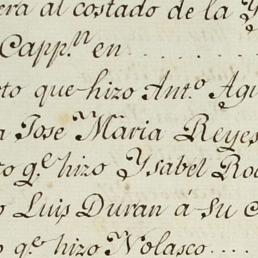 era al costado de la
Capp.ⁿ en . . . . . .
to que hizo Ant.º Agu
a Jose Maria Reyes
to q.ᵉ hizo Ysabel Ro
o Luis Duran á su
o q.ᵉ hizo Nolasco . . . .